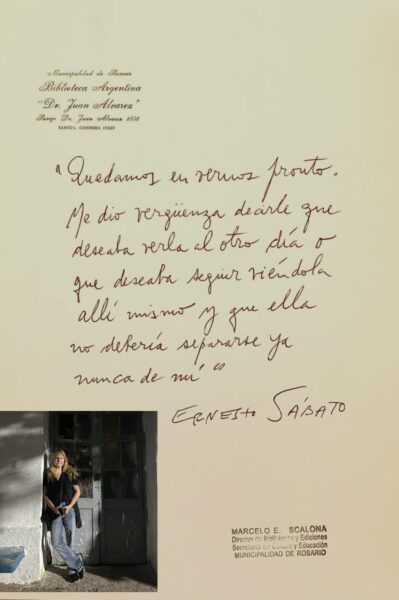 Municipalidad de Rosario
Biblioteca Argentina
"Dr. Juan Alvarez"
Pasaje Dr. Juan Alvarez 1550
(ANTES, CORDOBA 1558)
"Quedamos en vernos pronto.
Me dio vergüenza decirle que
deseaba verla al otro día o
que deseaba seguir viéndola
allí mismo y que ella
no debería separarse ya
nunca de mí"
ERNESTO SÁBATO
MARCELO E. SCALONA
Director de Bibliotecas y Ediciones
Secretaría de Cultura y Educación
MUNICIPALIDAD DE ROSARIO